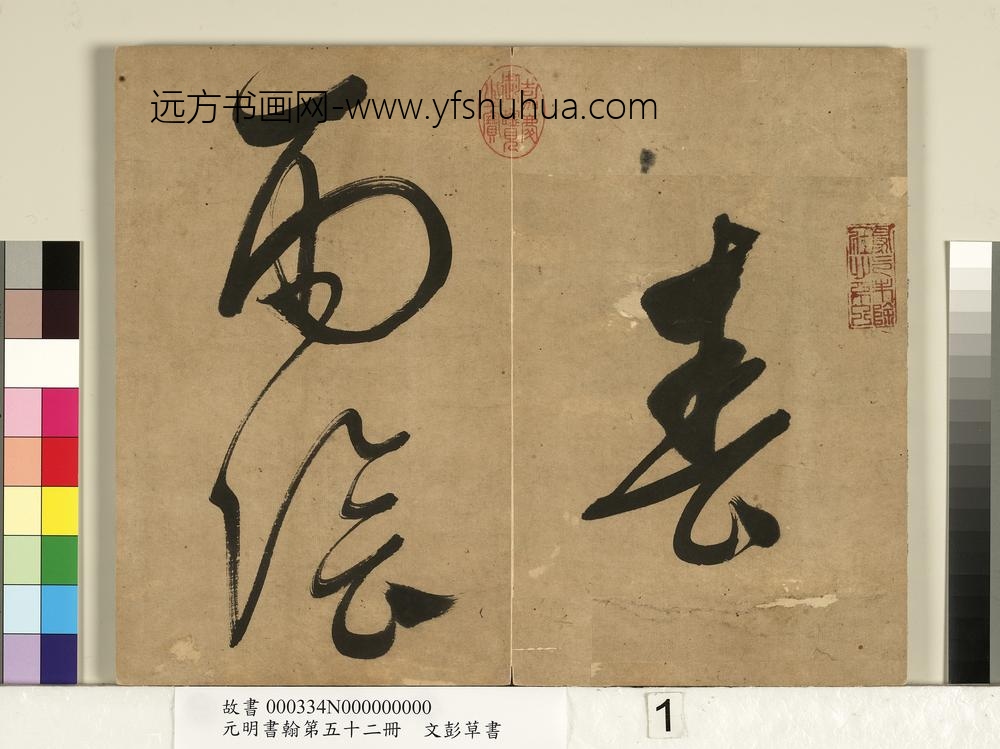 远方书画网-www.yfshuhua.com
春
雨
嘉慶御覽之寶
故書 000334N000000000
元明書翰第五十二冊 文彭草書
1